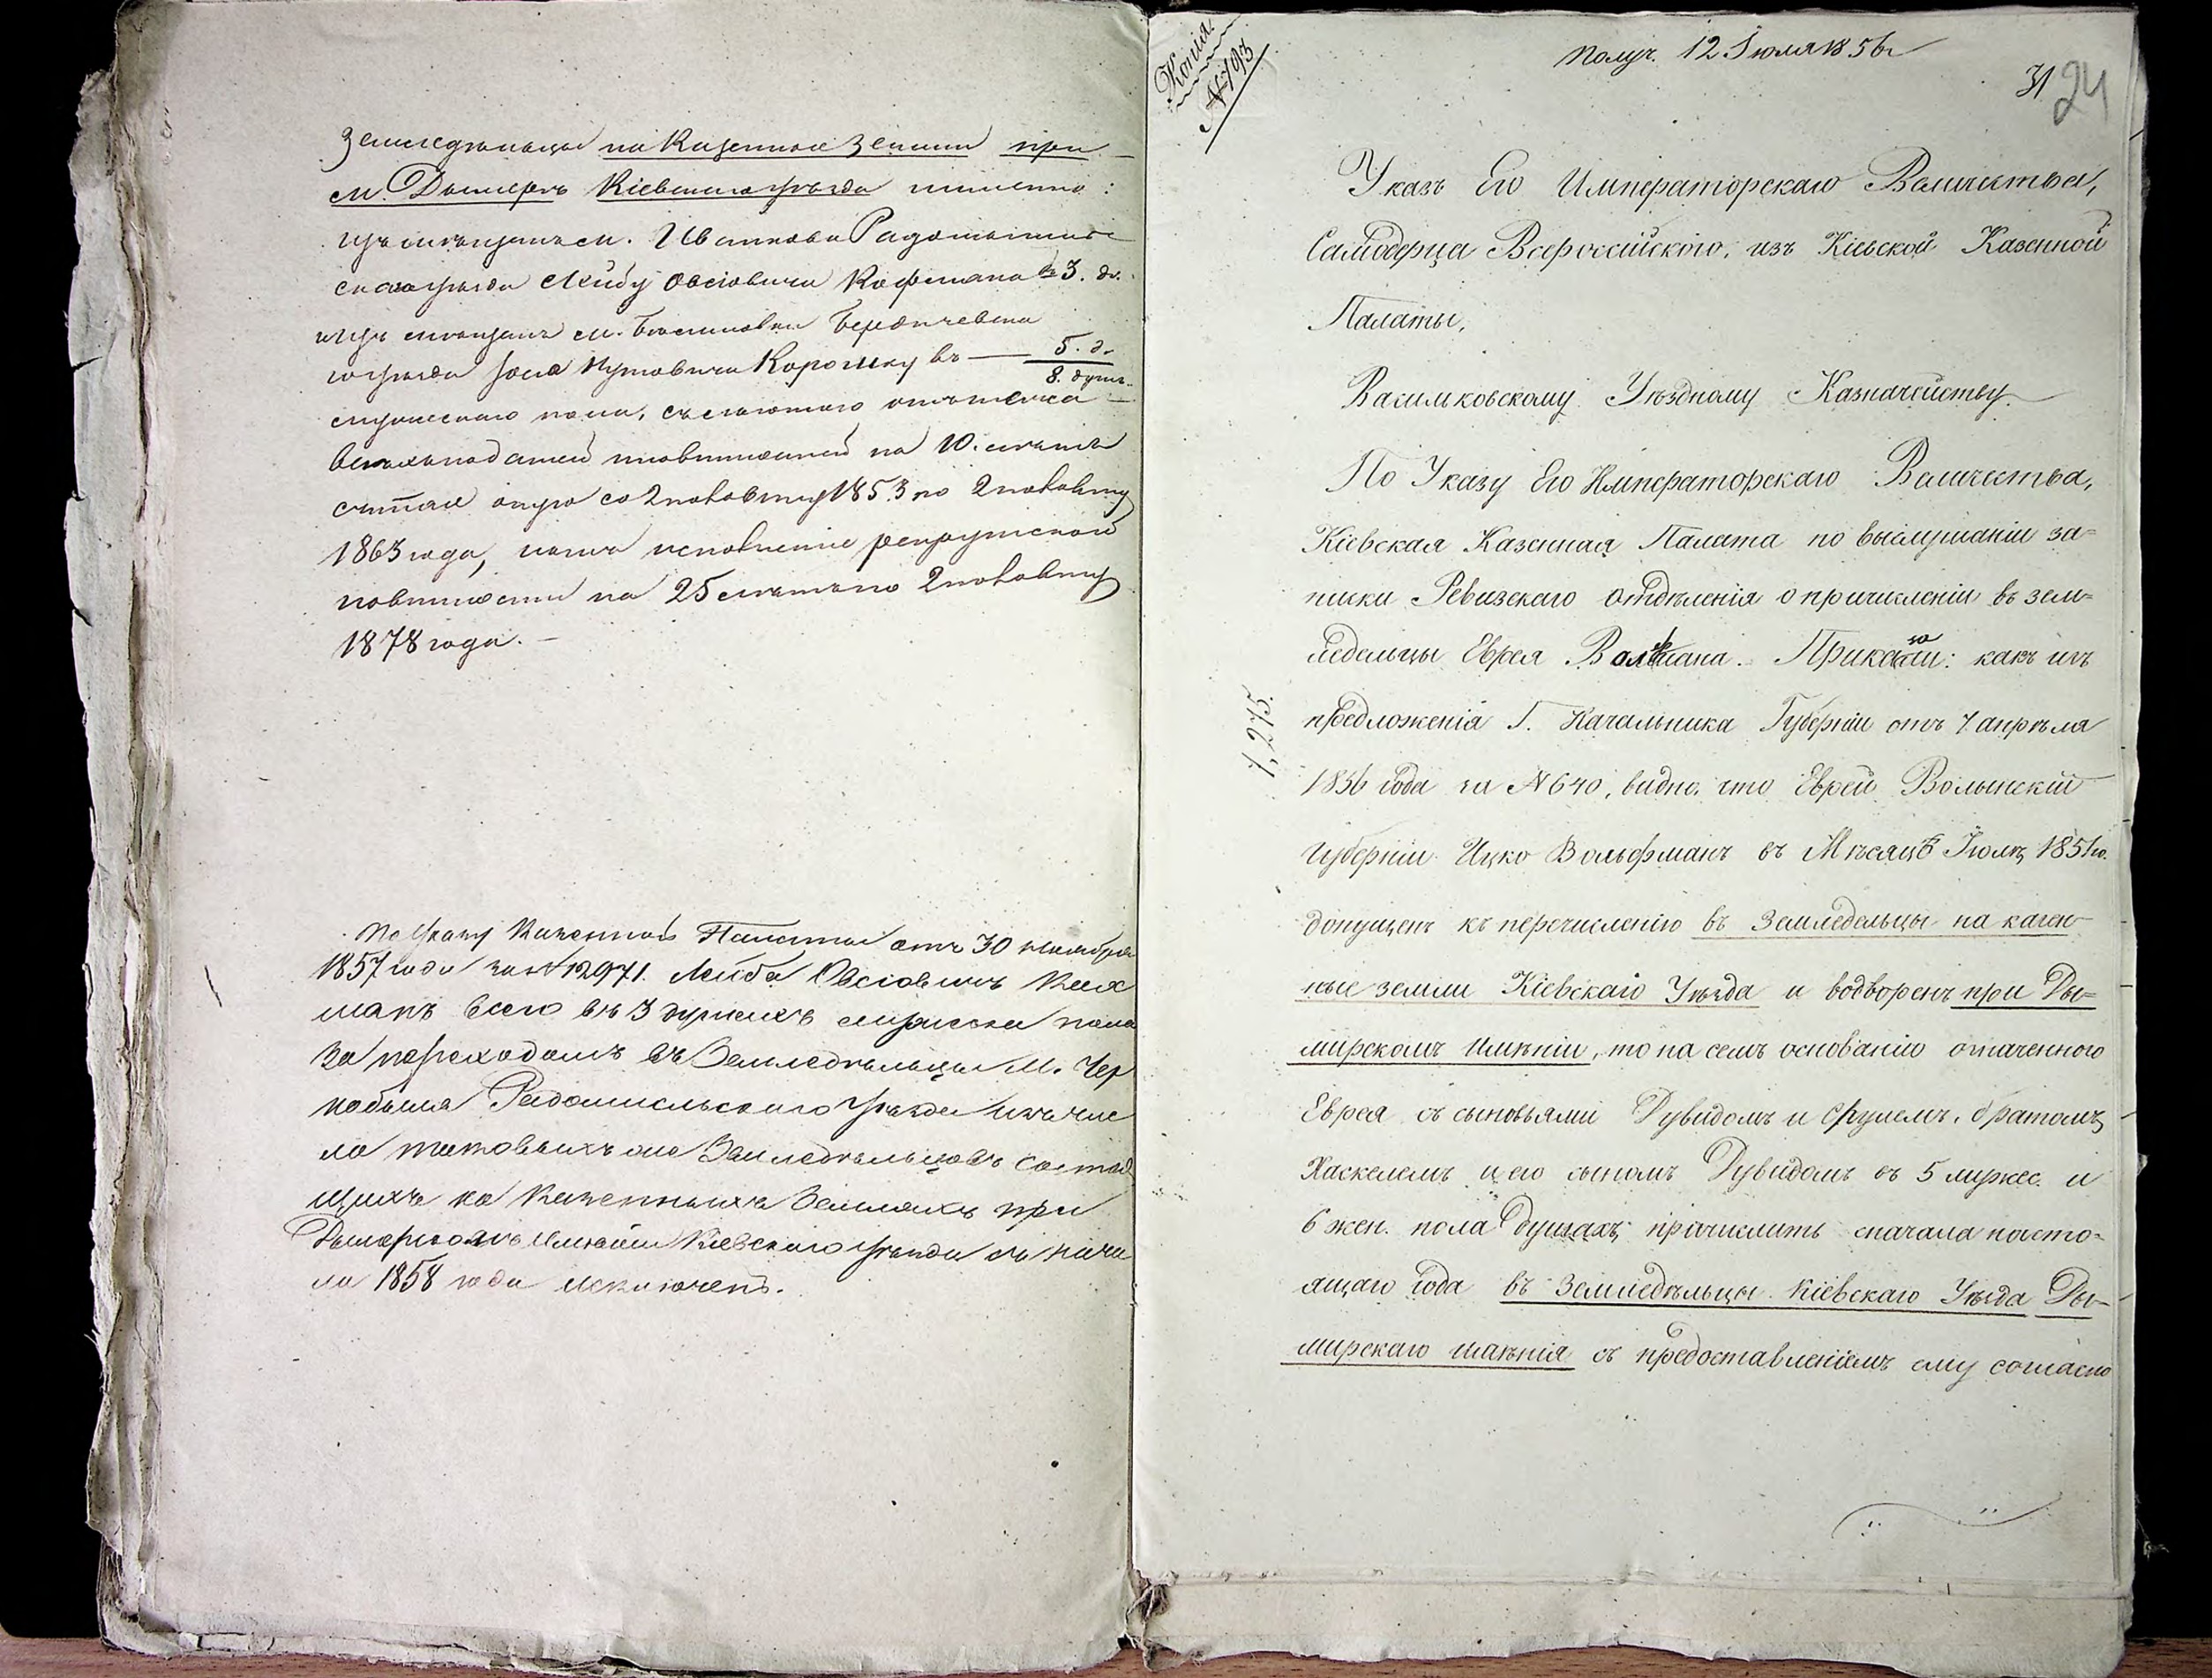 Земледѣльцы на Казенныя Земли при
м. Дымерѣ Кіевскаго уѣзда именно:
изъ мѣщанъ м. Иванкова Радомысль
скаго уѣзда Лейбу Овсіовича Кофмана въ 3. д.
изъ мѣщанъ м. Бердичевска
го уѣзда Іося Коропку въ — 5. д.
8. душъ
мужескаго пола, съ льготою отъ платежа
всѣхъ податей и повинностей на 10. лѣтъ
считая оную со 2 половины 1853 по 2 половину
1863 года, исполненія рекрутской
повинности на 25 лѣтъ по 2 половину
1878 года. —
По Указу Казенной Палаты отъ 30 Ноября
1857 года за № 12971. Лейба Овсіовичъ Кох
манъ всего въ 3 душахъ мужеска пола
за переходомъ въ Земледѣльцы М. Чер
нобыля Радомысльскаго уѣзда изъ чис
ла таковыхъ же Земледѣльцовъ состоя
щихъ на Казенныхъ Земляхъ при
Дымерскомъ имѣніи Кіевскаго уѣзда съ нача
ла 1858 года исключенъ.
Копія.
№ 793
Получ. 12 Іюля 1856 г
31
24
Указъ Его Императорскаго Величества,
Самодержца Всероссійскаго, изъ Кіевской Казенной
Палаты,
Васильковскому Уѣздному Казначейству.
По Указу Его Императорскаго Величества,
Кіевская Казенная Палата по выслушаніи за=
писки Ревизскаго отдѣленія о причисленіи въ зем=
ледельцы Еврея Вольфмана. Приказали: какъ изъ
1,275.
предложенія Г. Начальника Губерніи отъ 7 апрѣля
1856 года за № 640, видно, что Еврей Волынской
губерніи Ицко Вольфманъ въ Мѣсяцѣ Іюлѣ 1851 го.
допущенъ къ перечисленію въ Земледельцы на казен-
ные земли Кіевскаго Уѣзда и водворенъ при Ды=
мирскомъ имѣніи, то на семъ основаніи означеннаго
Еврея съ сыновьями Дувидомъ и Срулемъ, братомъ
Хаскелемъ и его сыномъ Дувидомъ въ 5 мужес. и
6 жен. пола душахъ, причислить сначала насто=
ящаго года въ Земледѣльцы Кіевскаго Уѣзда Ды-
мирскаго имѣнія съ предоставленіемъ ему согласно